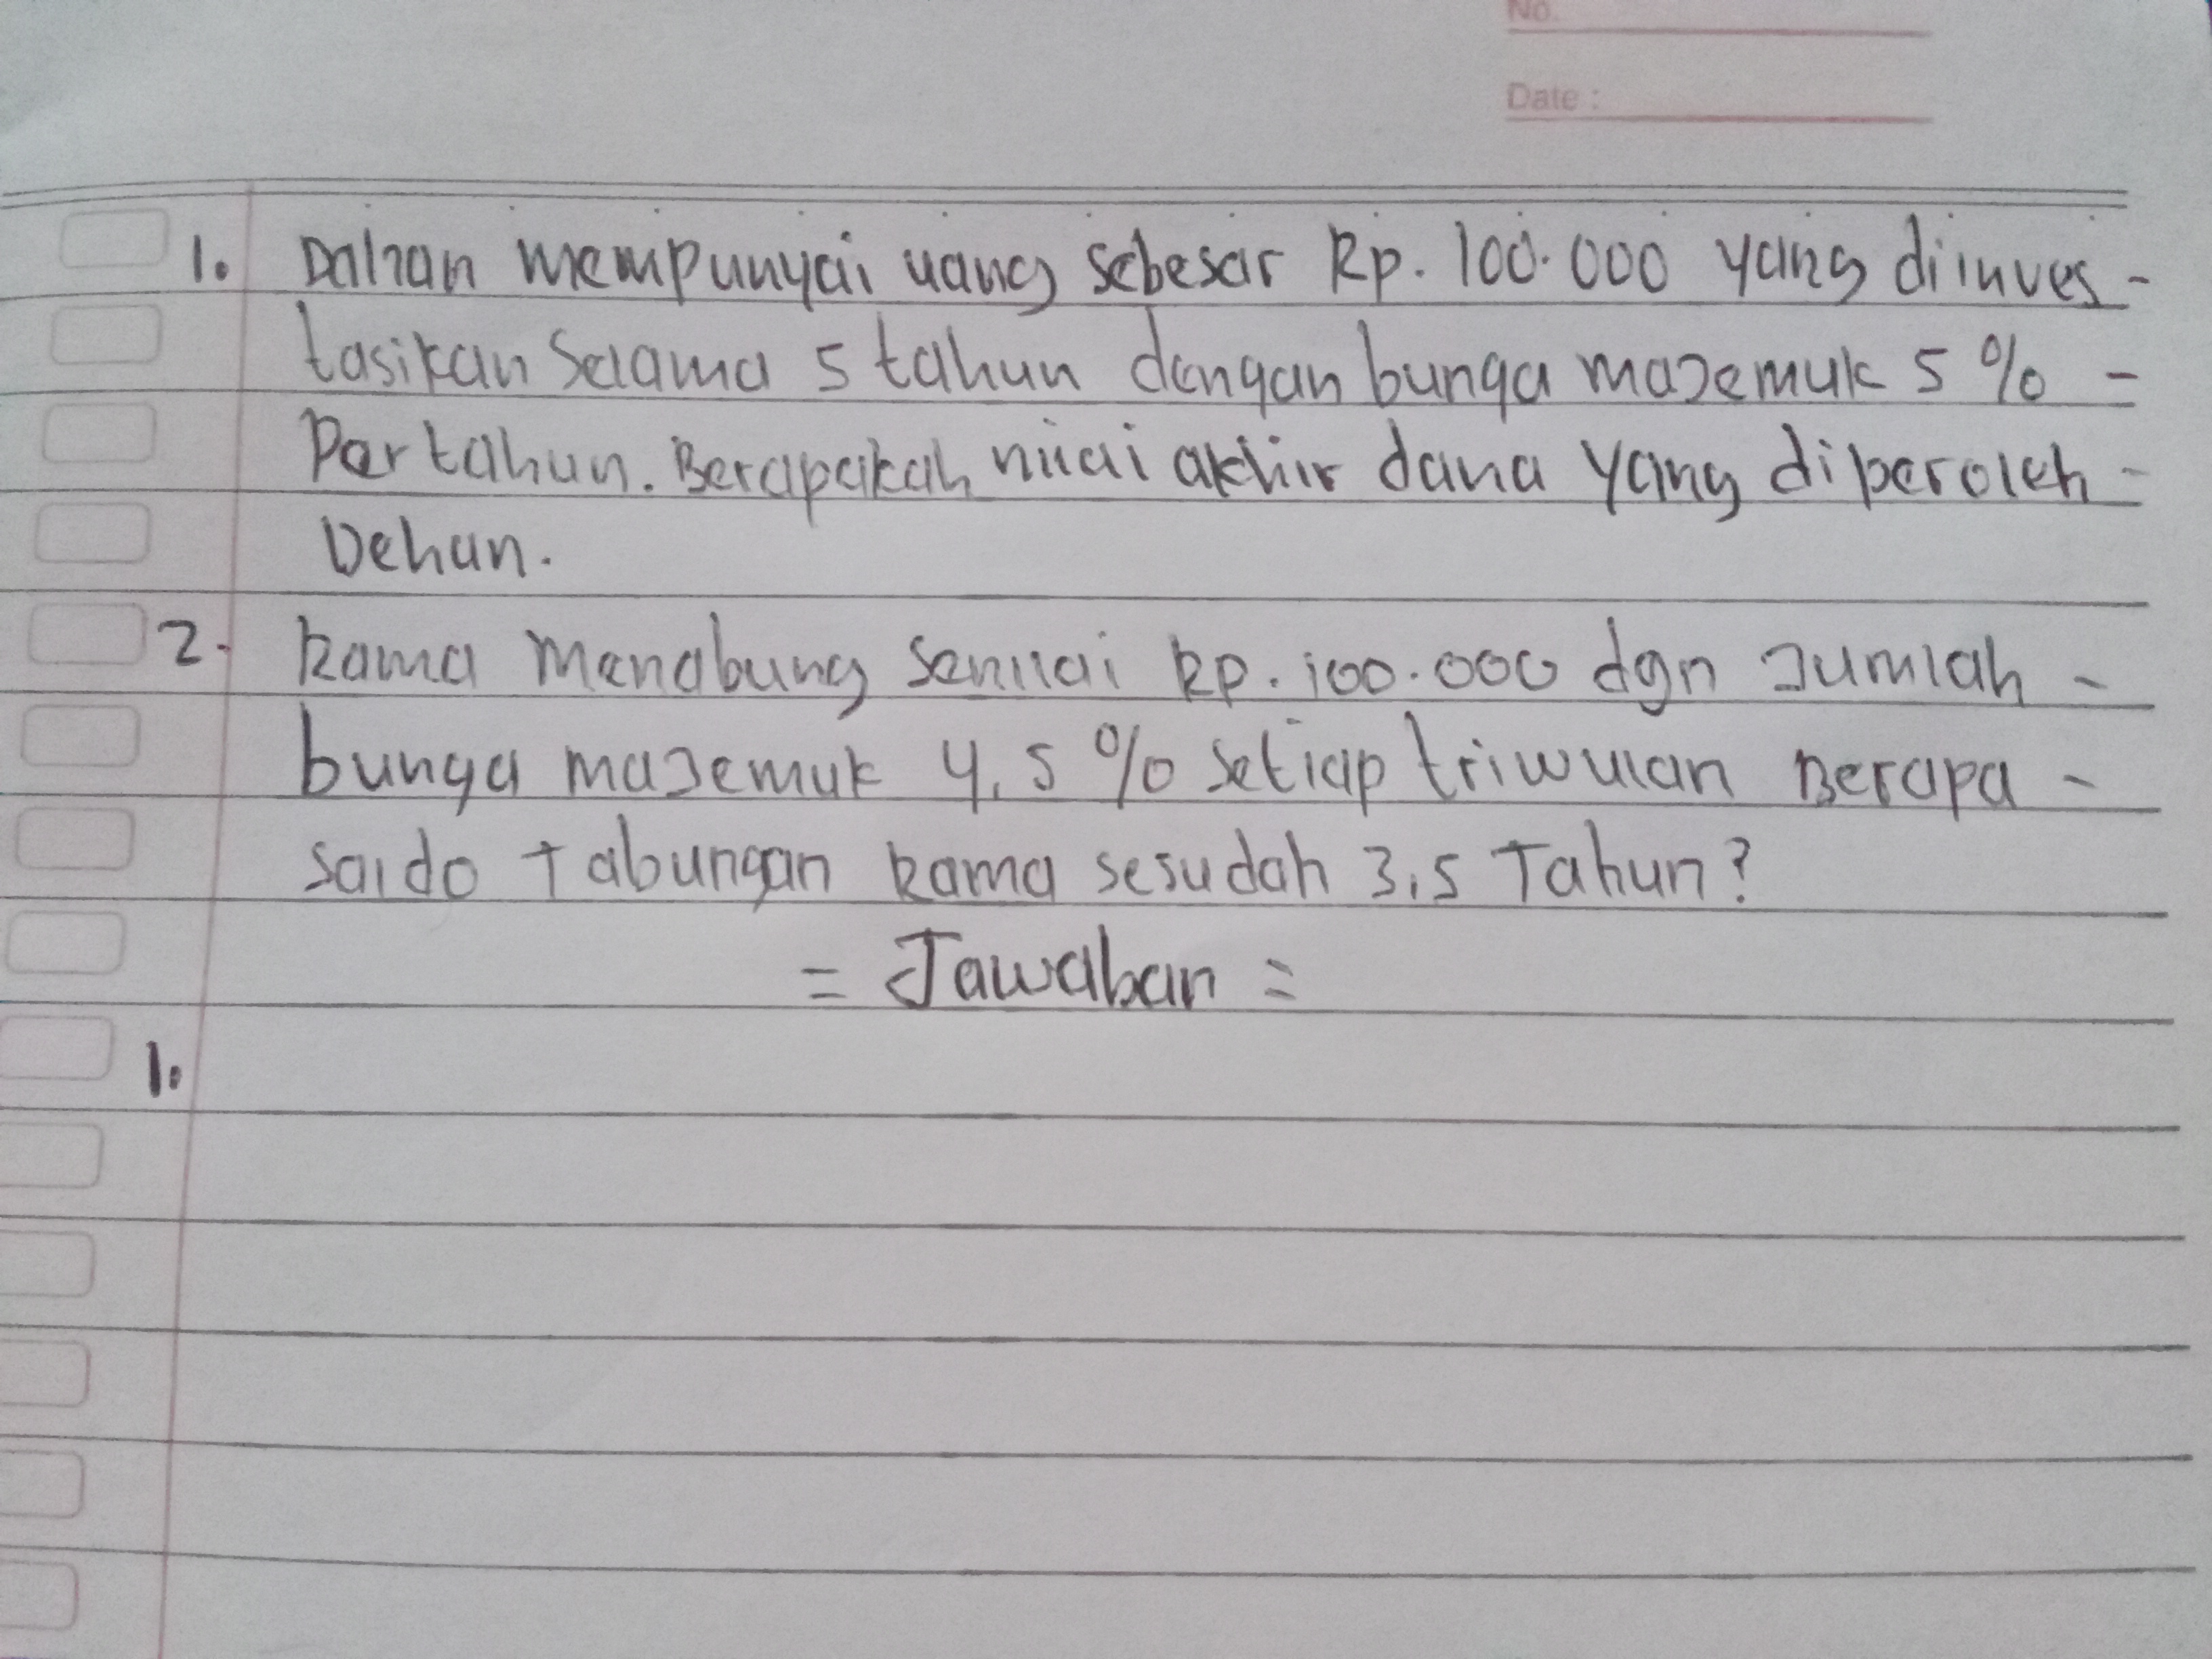 No.
Date :
1. Dahan mempunyai uang sebesar Rp. 100.000 yang diinves -
tasikan Selama 5 tahun dengan bunga majemuk 5 % =
Per tahun. Berapakah nilai akhir dana yang diperoleh =
Dehan.
2. Rama Menabung senilai Rp. 100.000 dgn Jumlah -
bunga majemuk 4,5 % setiap triwulan Berapa -
saldo tabungan Rama sesudah 3,5 Tahun?
= Jawaban =
1.